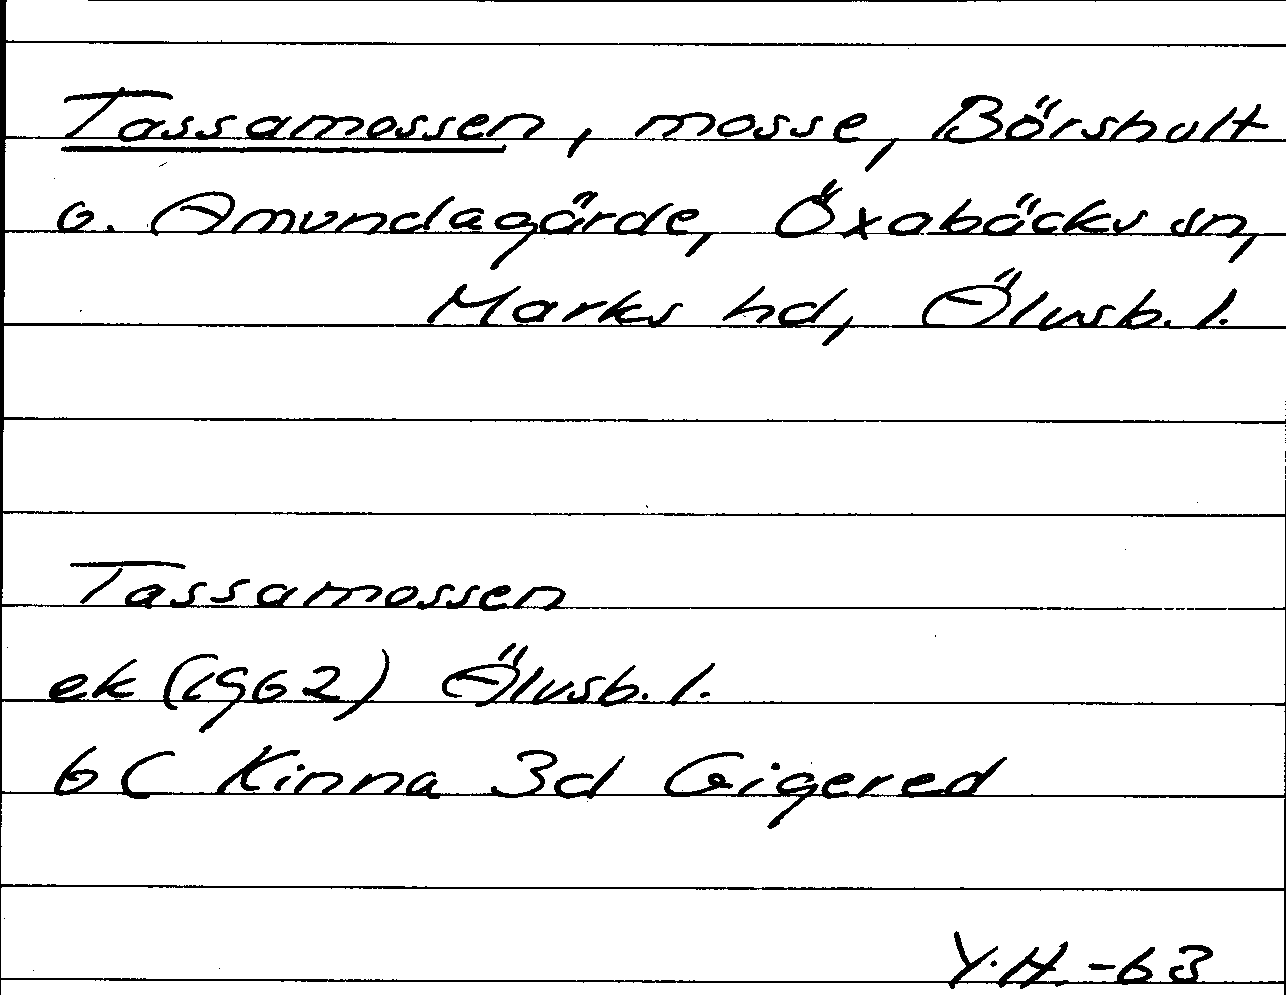 Tassamossen, mosse, Börshult
o. Amundagärde, Öxabäcks sn,
Marks hd, Älvsb. l.
Tassamossen
ek (1962) Älvsb. l.
6 C Kinna 3d Gigered
Y.H. -63